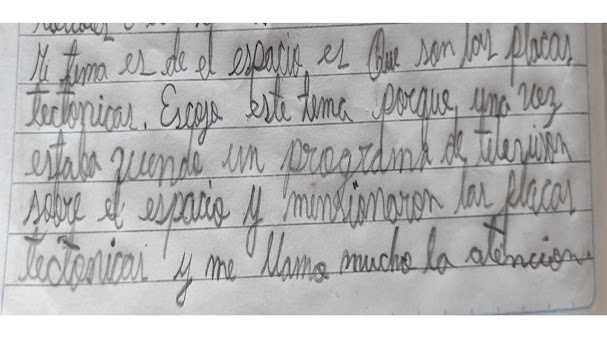 Mi tema es de el espacio es Que son las placas
tectonicas. Escojo este tema porque una vez
estaba viendo un programa de televisión
sobre el espacio y mensionaron las placas
tectonicas y me llamo mucho la atencion.